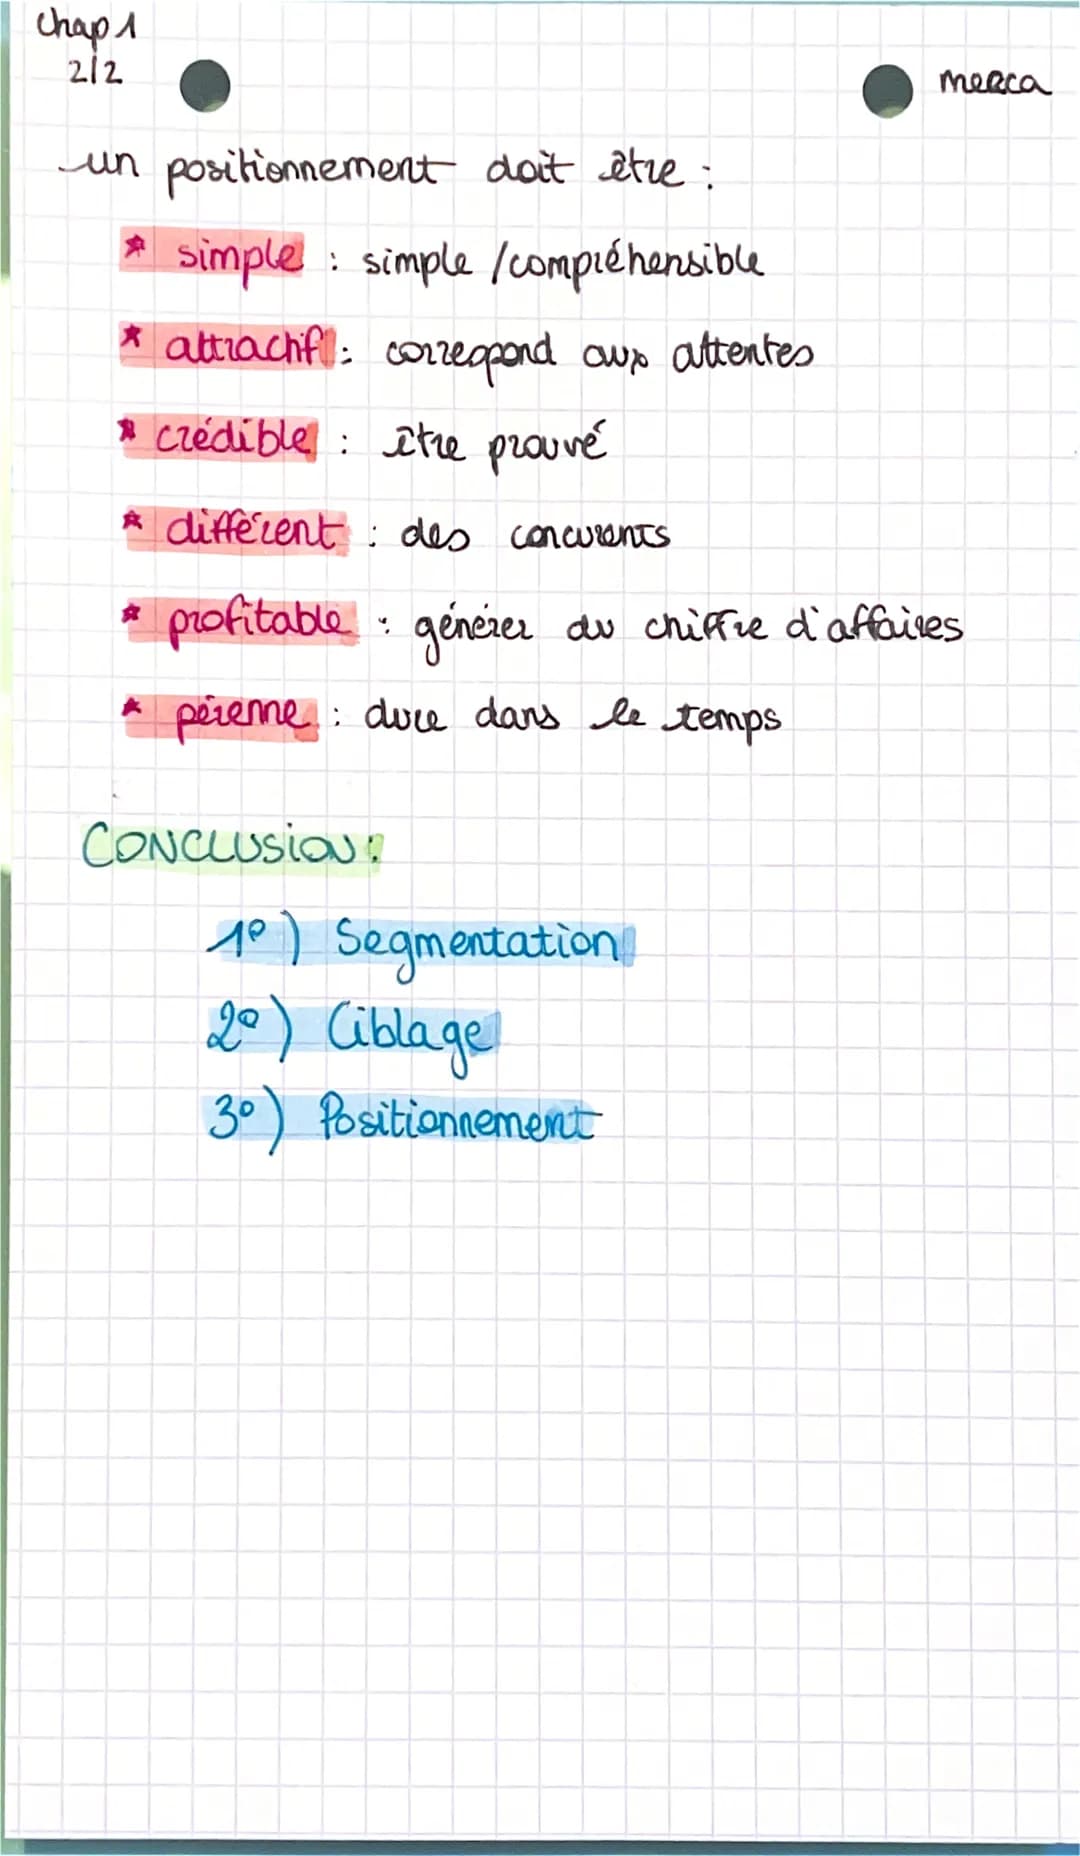 Chap 1
2/2
merca
un positionnement doit être :
* simple : simple /compréhensible
* attractif : correspond aux attentes
* crédible : être prouvé
* différent : des concurents
* profitable : générer du chiffre d'affaires
* pérenne : dure dans le temps
CONCLUSION :
1°) Segmentation
2°) Ciblage
3°) Positionnement